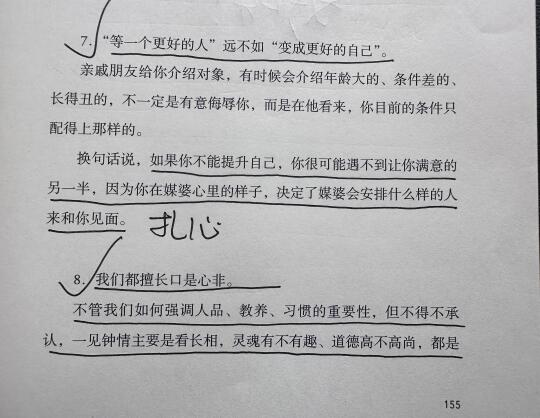 7.“等一个更好的人”远不如“变成更好的自己”。
亲戚朋友给你介绍对象，有时候会介绍年龄大的、条件差的、
长得丑的，不一定是有意侮辱你，而是在他看来，你目前的条件只
配得上那样的。
换句话说，如果你不能提升自己，你很可能遇不到让你满意的
另一半，因为你在媒婆心里的样子，决定了媒婆会安排什么样的人
来和你见面。 扎心
8.我们都擅长口是心非。
不管我们如何强调人品、教养、习惯的重要性，但不得不承
认，一见钟情主要是看长相，灵魂有不有趣、道德高不高尚，都是
155